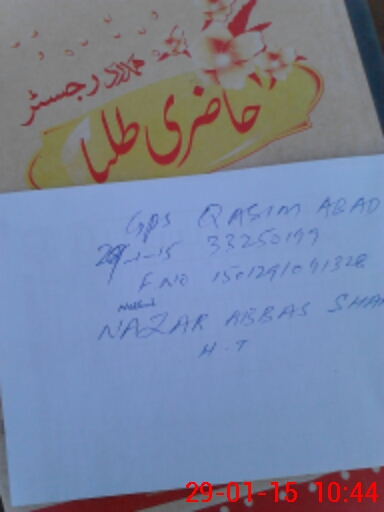 رجسٹر
حاضری طلبا
GPS QASIM ABAD
29-1-15 33250199
F NO 150129/091328
NAZAR ABBAS SHAH
H.T
29-01-15 10:44